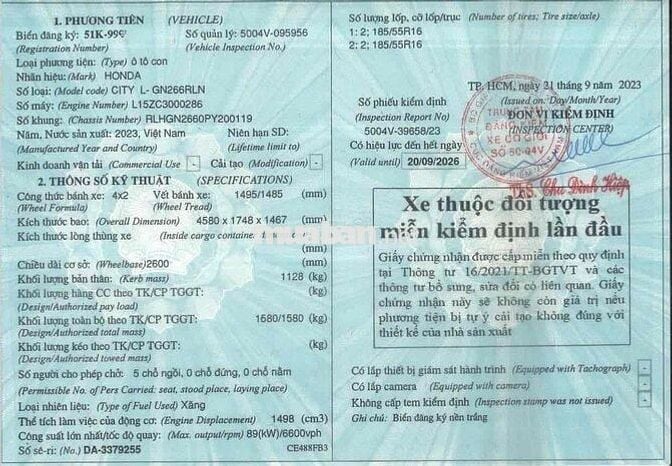 1. PHƯƠNG TIỆN (VEHICLE)
Biển đăng ký: 51K-99 Số quản lý: 5004V-095956
(Registration Number) (Vehicle Inspection No.)
Loại phương tiện: (Type) ô tô con
Nhãn hiệu: (Mark) HONDA
Số loại: (Model code) CITY L- GN266RLN
Số máy: (Engine Number) L15ZC3000286
Số khung: (Chassis Number) RLHGN2660PY200119
Năm, Nước sản xuất: 2023, Việt Nam Niên hạn SD:
(Manufactured Year and Country) (Lifetime limit to)
Kinh doanh vận tải (Commercial Use - Cải tạo (Modification) -
2. THÔNG SỐ KỸ THUẬT (SPECIFICATIONS)
Công thức bánh xe: 4x2 Vết bánh xe: 1495/1485 (mm)
(Wheel Formula) (Wheel Tread)
Kích thước bao: (Overall Dimension) 4580 x 1748 x 1467 (mm)
Kích thước lòng thùng xe (Inside cargo container (mm)
(mm)
Chiều dài cơ sở: (Wheelbase)2600 (mm)
Khối lượng bản thân: (Kerb mass) 1128 (kg)
Khối lượng hàng CC theo TK/CP TGGT: (kg)
(Design/Authorized pay load)
Khối lượng toàn bộ theo TK/CP TGGT: 1580/1580 (kg)
(Design/Authorized total mass)
Khối lượng kéo theo TK/CP TGGT: (kg)
(Design/Authorized towed mass)
Số người cho phép chở: 5 chỗ ngồi, 0 chỗ đứng, 0 chỗ nằm
(Permissible No. of Pers Carried: seat, stood place, laying place)
Loại nhiên liệu: (Type of Fuel Used) Xăng
Thể tích làm việc của động cơ: (Engine Displacement) 1498 (cm3)
Công suất lớn nhất/tốc độ quay: (Max. output/rpm) 89(kW)/6600vph
Số sê-ri: (No.) DA-3379255 CE488FB3
Số lượng lốp, cỡ lốp/trục (Number of tires; Tire size/axle)
1: 2; 185/55R16
2: 2; 185/55R16
TP. HCM, ngày 21 tháng 9 năm 2023
Số phiếu kiểm định (Issued on: Day/Month/Year)
(Inspection Report No) ĐƠN VỊ KIỂM ĐỊNH
5004V-39658/23 (INSPECTION CENTER)
Có hiệu lực đến hết ngày
(Valid until) 20/09/2026
TRUNG TÂM
ĐĂNG KIỂM
XE CƠ GIỚI
SỐ 50-04V
ThS. Chu Đình Hiệp
Xe thuộc đối tượng
miễn kiểm định lần đầu
Giấy chứng nhận được cấp miễn theo quy định
tại Thông tư 16/2021/TT-BGTVT và các
thông tư bổ sung, sửa đổi có liên quan. Giấy
chứng nhận này sẽ không còn giá trị nếu
phương tiện bị tự ý cải tạo không đúng với
thiết kế của nhà sản xuất
Có lắp thiết bị giám sát hành trình (Equipped with Tachograph) -
Có lắp camera (Equipped with camera) -
Không cấp tem kiểm định (Inspection stamp was not issued) -
Ghi chú: Biển đăng ký nền trắng